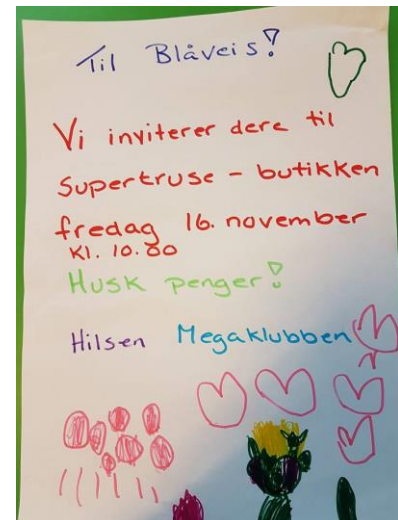 Til Blåveis!
Vi inviterer dere til
Supertruse - butikken
fredag 16. november
Kl. 10.00
Husk penger!
Hilsen Megaklubben